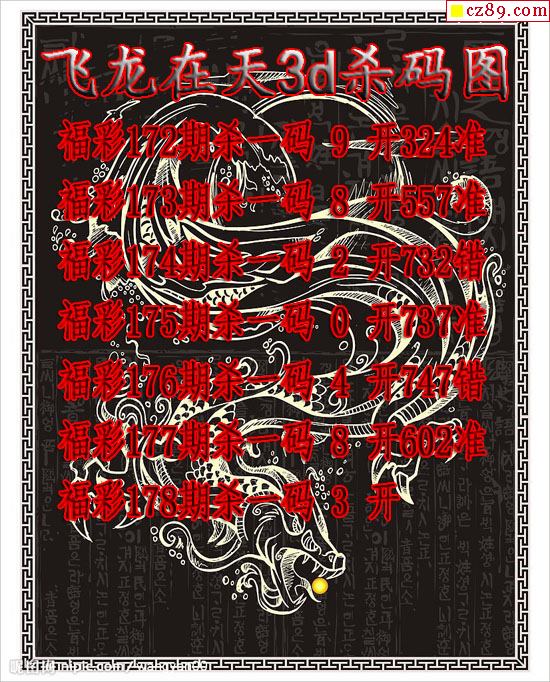 cz89.com
飞龙在天3d杀码图
福彩172期杀一码 9 开324准
福彩173期杀一码 8 开557准
福彩174期杀一码 2 开732错
福彩175期杀一码 0 开737准
福彩176期杀一码 4 开747错
福彩177期杀一码 8 开602准
福彩178期杀一码 3 开